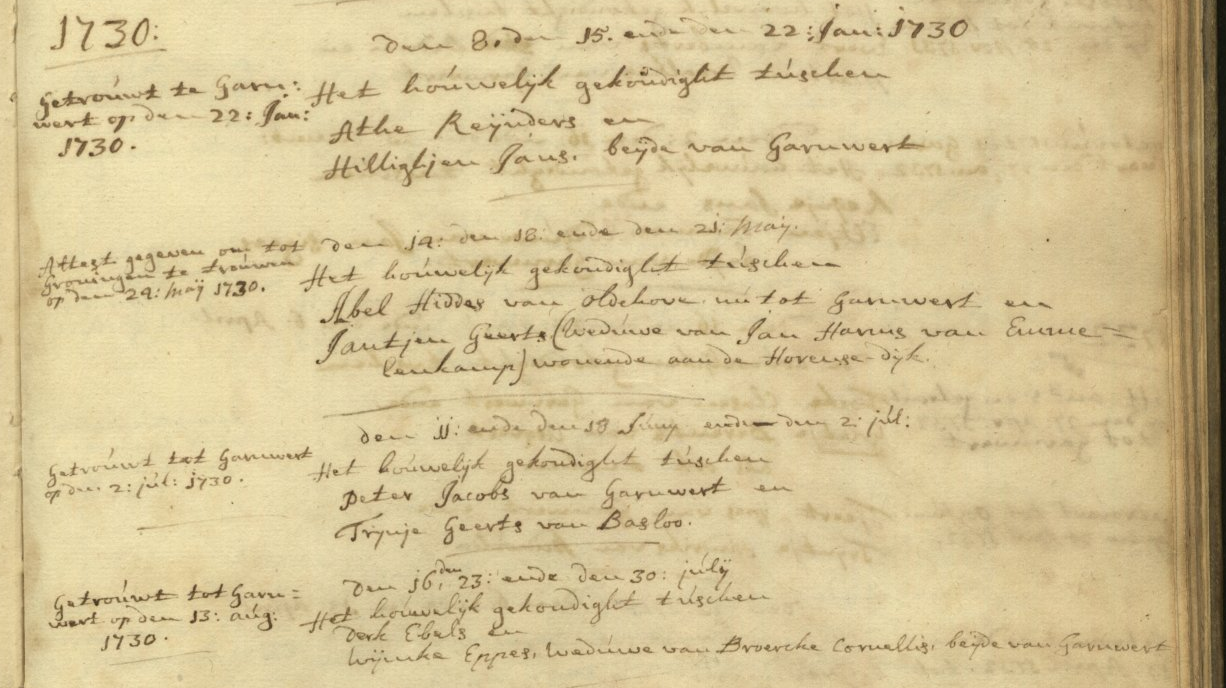 1730:
den 8. den 15. ende den 22: Jan: 1730
Getrouwt te Garn:
wert op den 22: Jan:
1730.
Het houwelijk gekondight tuschen
Athe Reijnders en
Hillightjen Jans. beijde van Garnwert
Attest gegeven om tot
Groningen te trouwen
op den 29: Maij 1730.
den 14: den 18: ende den 21: Maij.
Het houwelijk gekondight tuschen
Abel Hiddes van Oldehove nu tot Garnwert en
Jantjen Geerts (weduwe van Jan Harms van Emme=
lenkamp) wonende aan de Horense dijk.
Getrouwt tot Garnwert
op den 2: júl: 1730.
den 11: ende den 18 Junij ende den 2: júl:
Het houwelijk gekondight tuschen
Peter Jacobs van Garnwert en
Trijnje Geerts van Basloo.
Getrouwt tot Garn=
wert op den 13: aug:
1730.
den 16, den 23: ende den 30: júlij
Het houwelijk gekondight tuschen
Derk Ebels en
Wijnke Eppes, weduwe van Broercke Cornellis, beijde van Garnwert